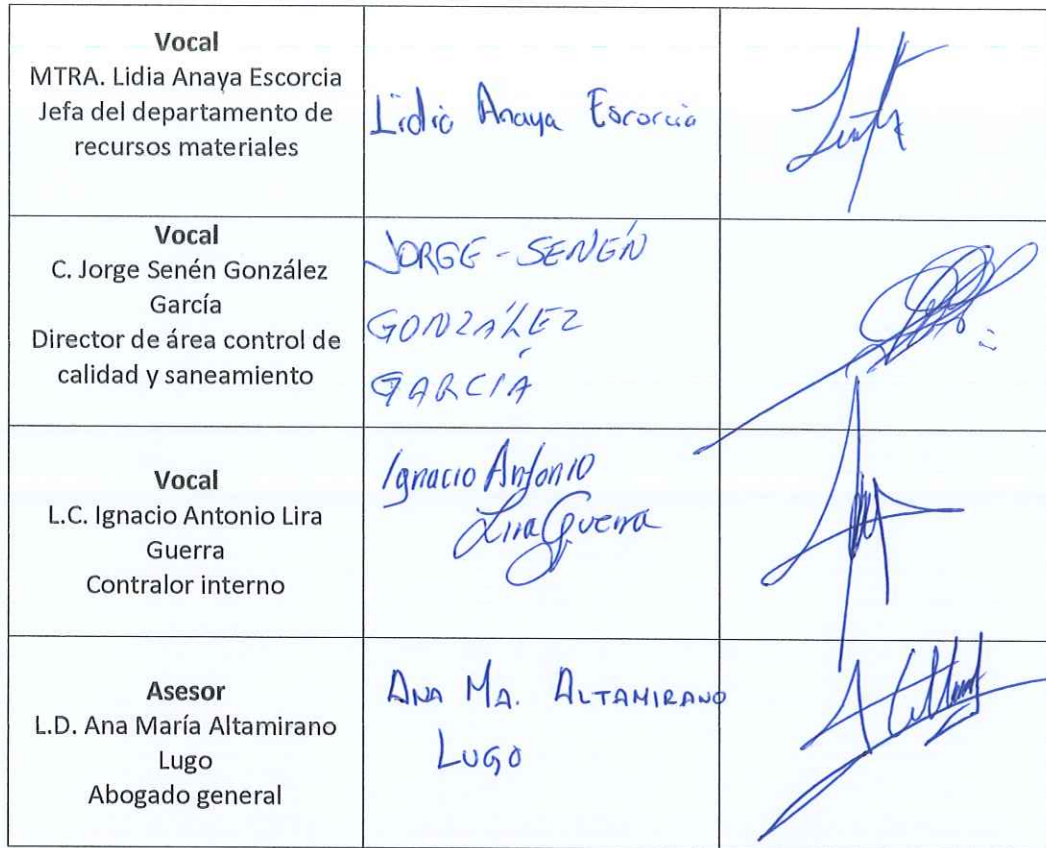 Vocal
MTRA. Lidia Anaya Escorcia
Jefa del departamento de
recursos materiales
Lidia Anaya Escorcia
Vocal
C. Jorge Senén González
García
Director de área control de
calidad y saneamiento
JORGE - SENÉN
GONZÁLEZ
GARCÍA
Vocal
L.C. Ignacio Antonio Lira
Guerra
Contralor interno
Ignacio Antonio
Lira Guerra
Asesor
L.D. Ana María Altamirano
Lugo
Abogado general
ANA MA. ALTAMIRANO
LUGO